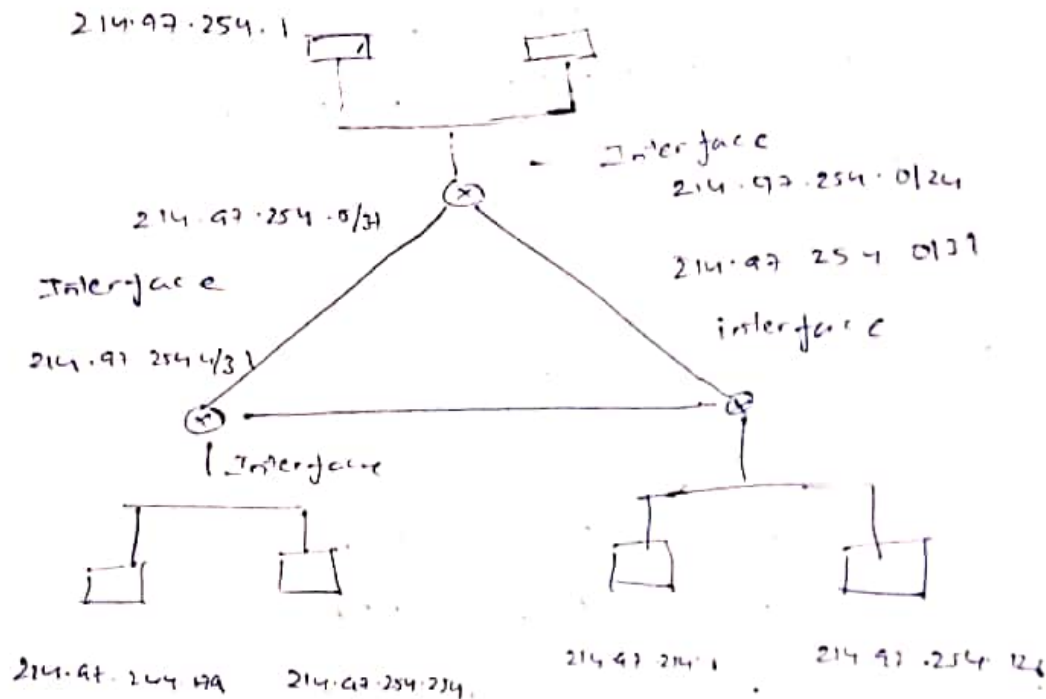 214.97.254.1
Interface
214.97.254.0/24
214.97.254.0/31
214.97 254 0/31
Interface
interface
214.97 254 4/31
Interface
214.97.254.234.
214 97 214 1
214 97 .254. 126